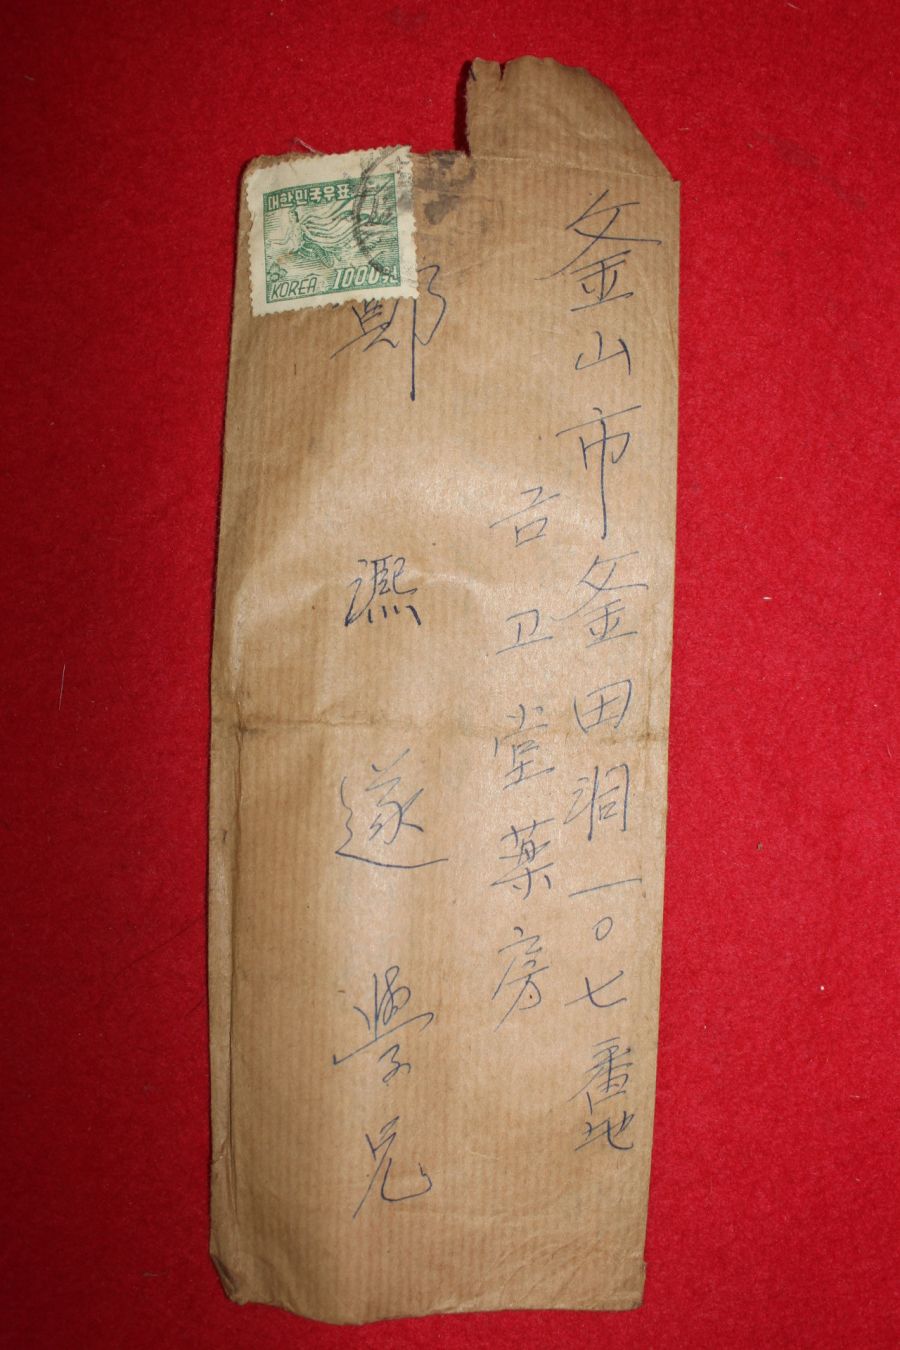 대한민국우표
KOREA 1000원
釜山市釜田洞一〇七番地
堂薬房
鄭凞遂學兄